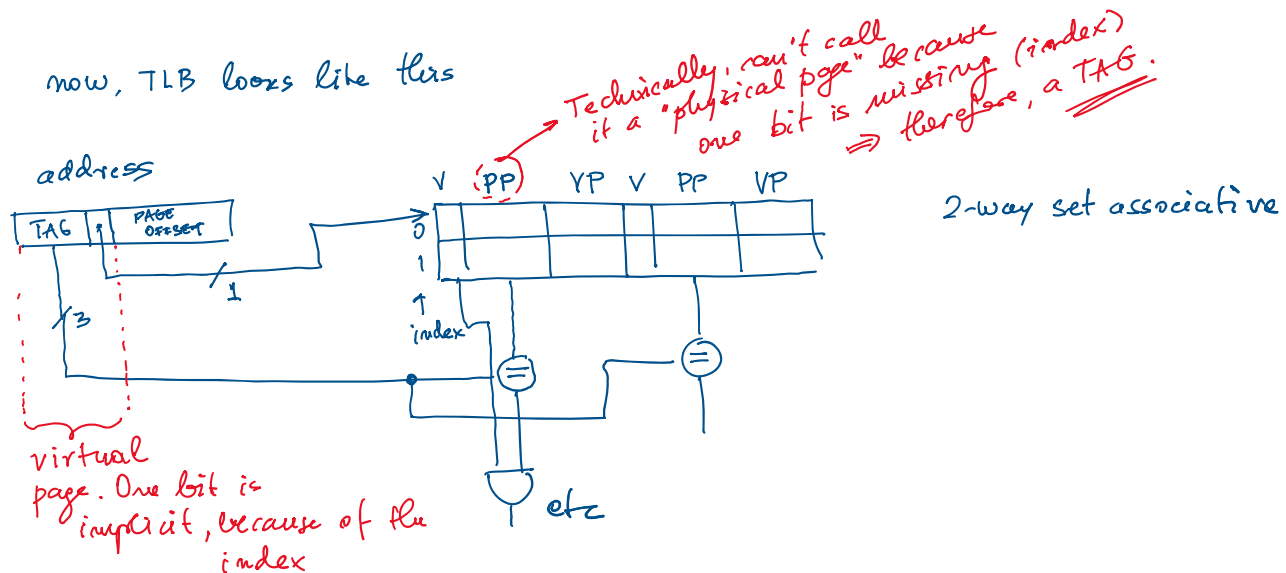 now, TLB looks like this
Technically, can't call
it a "physical page" because
one bit is missing (index)
⇒ therefore, a TAG.
address
TAG
PAGE
OFFSET
V PP VP V PP VP
2-way set associative
0
1
1
3
↑
index
=
=
virtual
page. One bit is
implicit, because of the
index
etc